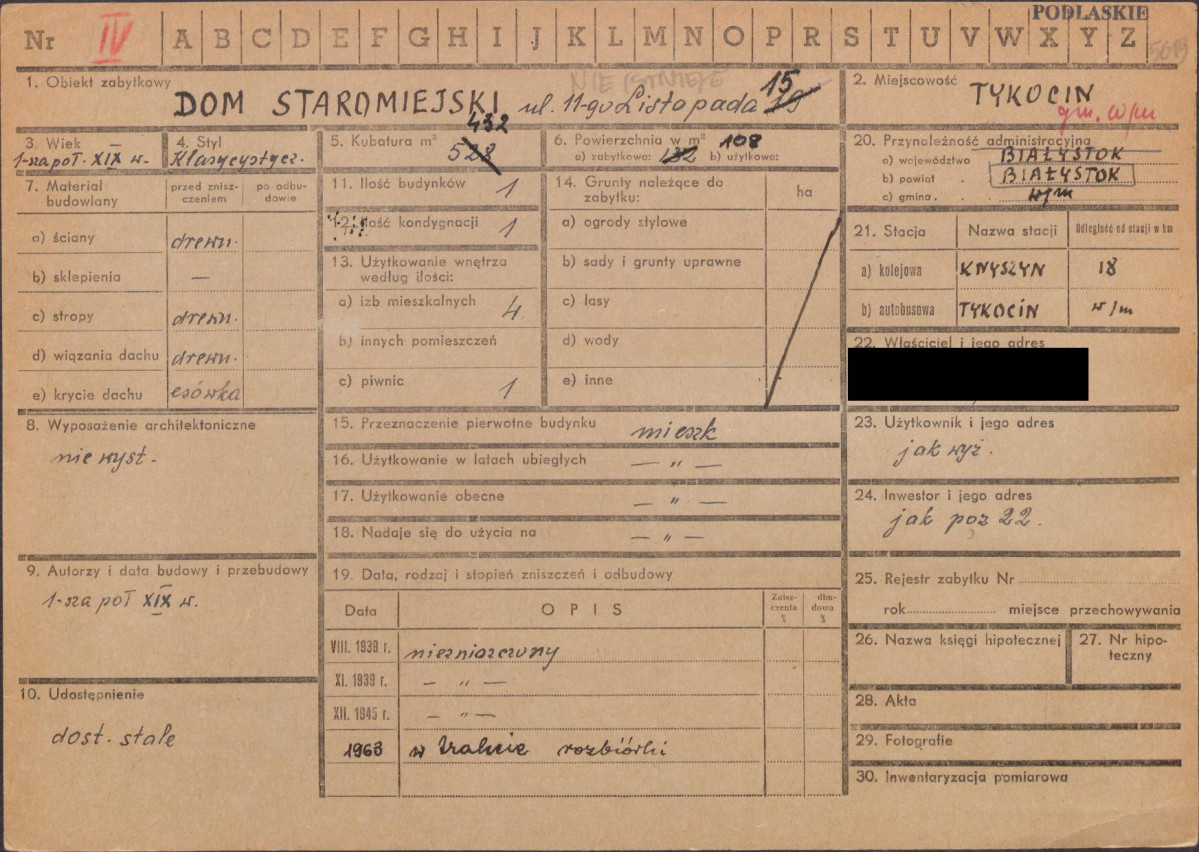 PODLASKIE
Nr IV A B C D E F G H I J K L M N O P R S T U V W X Y Z
5619
NIE ISTNIEJE
1. Obiekt zabytkowy
DOM STAROMIEJSKI ul. 11-go Listopada 19 15
2. Miejscowość
TYKOCIN
gm. w/m
3. Wiek
1-sza poł. XIX w.
4. Styl
Klasycystycz.
5. Kubatura m³
528 432
6. Powierzchnia w m²
a) zabytkowa: 132 b) użytkowa:
108
7. Materiał budowlany
przed znisz-
czeniem
po odbu-
dowie
a) ściany drewn.
b) sklepienia —
c) stropy drewn.
d) wiązania dachu drewn.
e) krycie dachu esówka
8. Wyposażenie architektoniczne
nie wyst.
9. Autorzy i data budowy i przebudowy
1-sza poł XIX w.
10. Udostępnienie
dost. stale
11. Ilość budynków 1
12. Ilość kondygnacji 1
13. Użytkowanie wnętrza
według ilości:
a) izb mieszkalnych 4
b) innych pomieszczeń
c) piwnic 1
14. Grunty należące do
zabytku:
ha
a) ogrody stylowe
b) sady i grunty uprawne
c) lasy
d) wody
e) inne
15. Przeznaczenie pierwotne budynku mieszk
16. Użytkowanie w latach ubiegłych — " —
17. Użytkowanie obecne — " —
18. Nadaje się do użycia na — " —
19. Data, rodzaj i stopień zniszczeń i odbudowy
Data OPIS Znisz-
czenia
% dbu-
dowa
%
VIII. 1939 r. niezniszczony
XI. 1939 r. — " —
XII. 1945 r. — " —
1963 w trakcie rozbiórki
20. Przynależność administracyjna
a) województwo BIAŁYSTOK
b) powiat BIAŁYSTOK
c) gmina w/m
21. Stacja Nazwa stacji Odległość od stacji w km
a) kolejowa KNYSZYN 18
b) autobusowa TYKOCIN w/m
22. Właściciel i jego adres
23. Użytkownik i jego adres
jak wyż.
24. Inwestor i jego adres
jak poz 22.
25. Rejestr zabytku Nr
rok miejsce przechowywania
26. Nazwa księgi hipotecznej
27. Nr hipo-
teczny
28. Akta
29. Fotografie
30. Inwentaryzacja pomiarowa